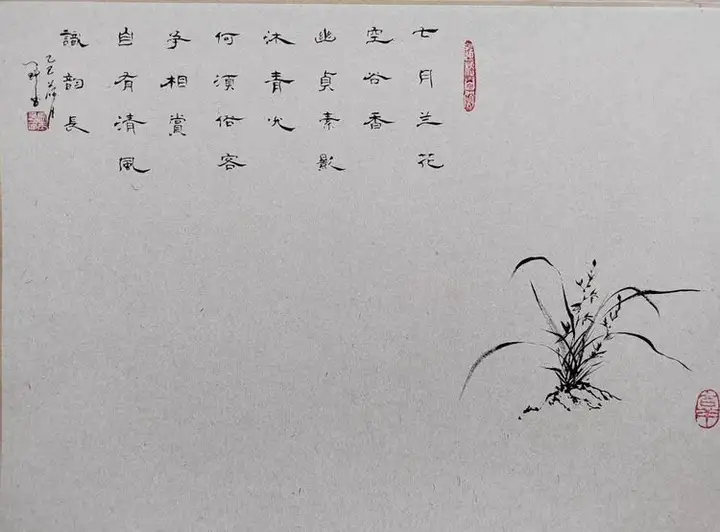 七月兰花
空谷香
幽贞素影
沐青光
何须俗客
争相赏
自有清风
識韵长
乙巳